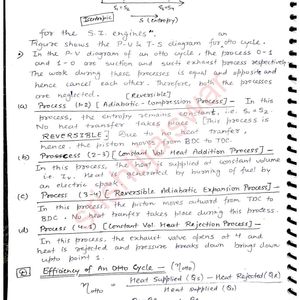 S₁=S₂ S₃=S₄
S (entropy)
Isentropic
for the S.I. engines" an
Figure shows the P-V & T-S diagram for otto cycle.
In the P-V diagram of an otto cycle, the process 0-1
and 1-0 are suction and suction exhaust process respectively
The work during these processes is equal and opposite and
hence cancel each other. Therefore, both the processes
are neglected. (Reversible)
a) Process (1-2) [Adiabatic-Compression Process] - In this
process, the entropy remains constant, i.e. S₁ = S₂.
No heat transfer takes place [This process is
REVERSIBLE] Due to heat transfer,
hence, the piston moves from BDC to TDC.
b) Prosscess (2-3) [Constant Vol Heat Addition Process]
In this process, the heat is supplied at constant volume
i.e. Heat is generated by burning of fuel by
an electric spark.
c) Process (3-4) [Reversible Adiabatic Expansion Process]-
In this process, the piston moves outward from TDC to
BDC. No heat tranfer takes place during this process.
d) Process (4-1) [Constant Vol. Heat Rejection Process]-
In this process, the exhaust valve opens at 4 and
heat is rejected and pressure breaks down brings down
upto point 1.
Efficiency of An Otto Cycle - (η otto)
η otto = Heat Supplied (Qs) - Heat Rejected (QR)
Heat supplied (Qs)